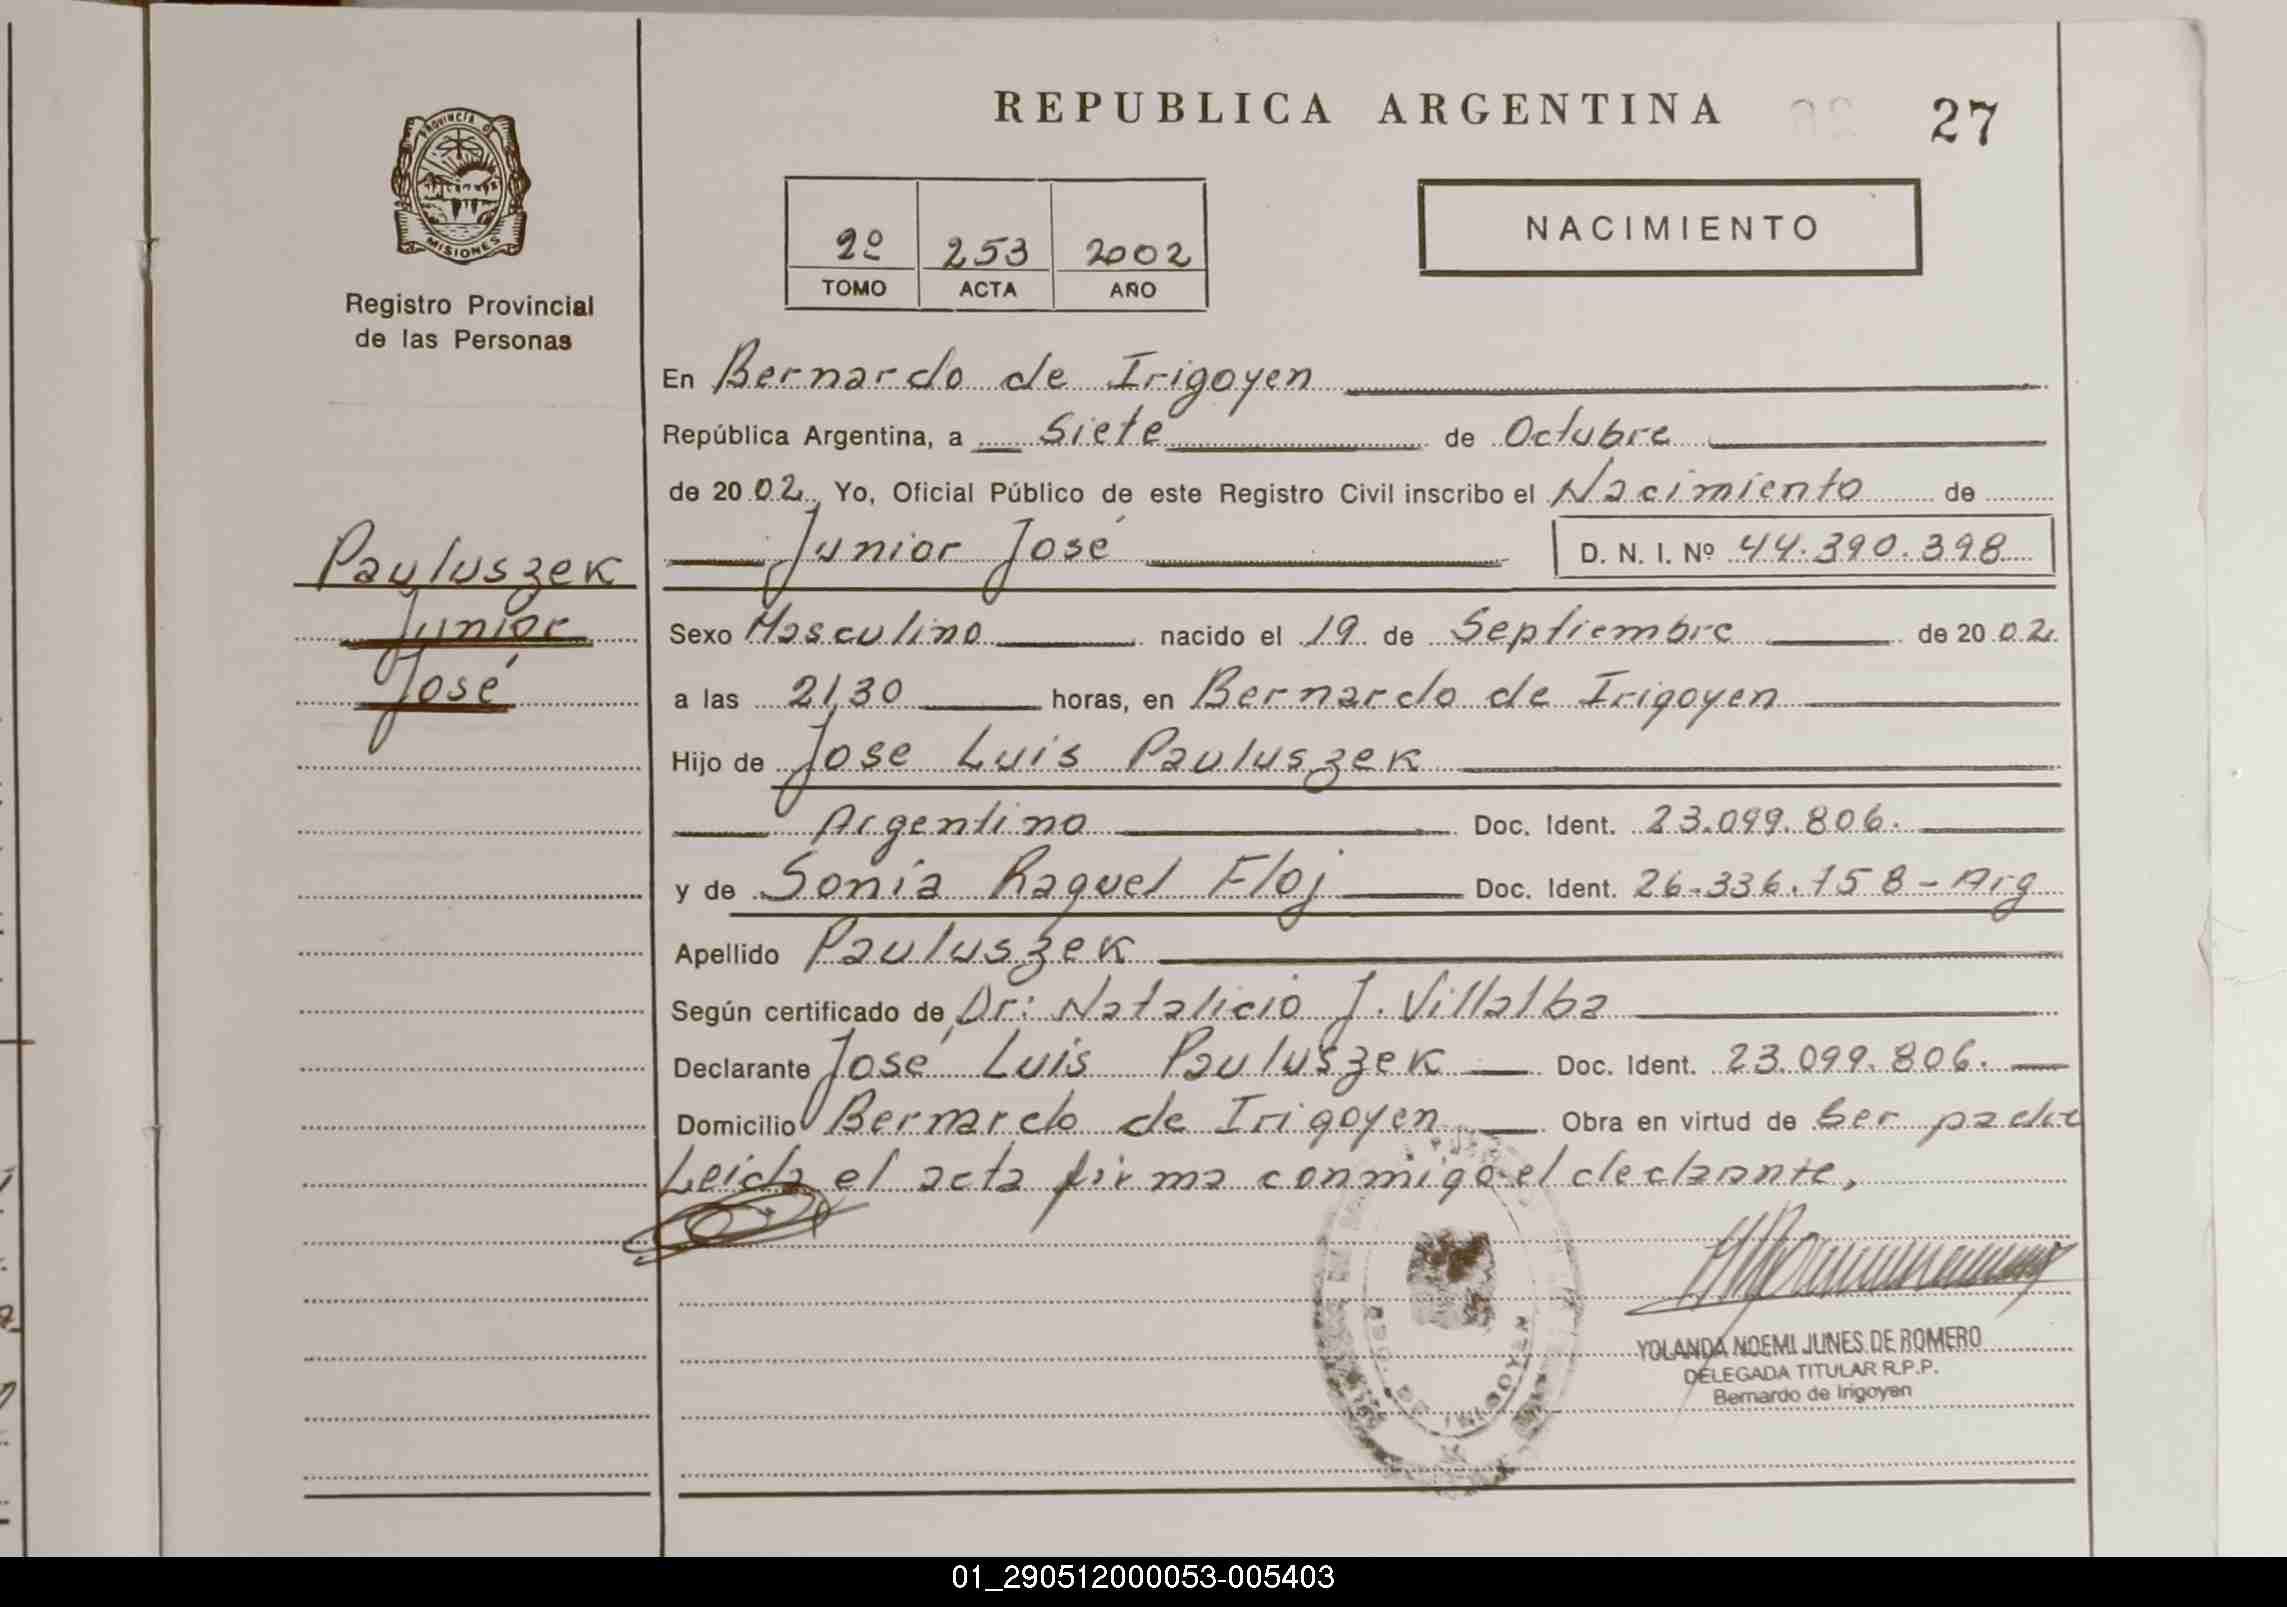 REPUBLICA ARGENTINA 27
PROVINCIA DE
MISIONES
Registro Provincial
de las Personas
2º 253 2002
TOMO ACTA AÑO
NACIMIENTO
En Bernardo de Irigoyen
República Argentina, a Siete de Octubre
de 20 02, Yo, Oficial Público de este Registro Civil inscribo el Nacimiento de
Junior José D. N. I. Nº 44.390.398
Pauluszek
Junior
José
Sexo Masculino nacido el 19 de Septiembre de 20 02.
a las 21,30 horas, en Bernardo de Irigoyen
Hijo de Jose Luis Pauluszek
Argentino Doc. Ident. 23.099.806.
y de Sonia Raquel Floj Doc. Ident. 26.336.158 - Arg
Apellido Pauluszek
Según certificado de Dr: Natalicio J. Villalba
Declarante José Luis Pauluszek Doc. Ident. 23.099.806.
Domicilio Bernardo de Irigoyen Obra en virtud de Ser padre
Leida el acta firma conmigo el declarante,
DE IRIGOYEN
YOLANDA NOEMI JUNES DE ROMERO
DELEGADA TITULAR R.P.P.
Bernardo de Irigoyen
01_290512000053-005403